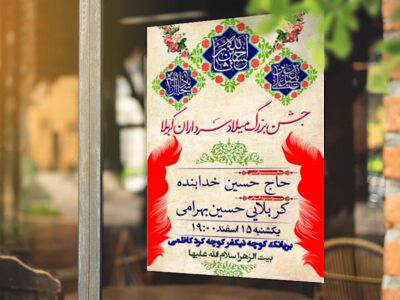 جشن بزرگ میلاد سرداران کربلا
حاج حسین خدابنده
کربلایی حسین بهرامی
یکشنبه ۱۵ اسفند ۱۹:۰۰
بریانک کوچه نیکفر کوچه کرد کاظمی
بیت الزهرا سلام الله علیها